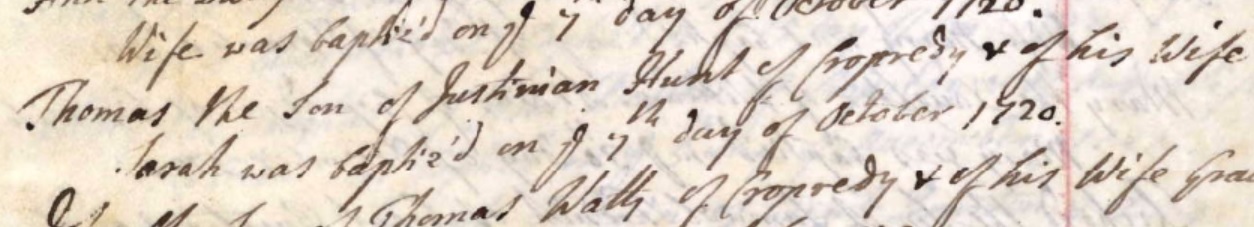 Wife was baptiz'd on ye 7th day of October 1720.
Thomas the Son of Justinian Hunt of Cropredy & of his Wife
Sarah was baptiz'd on ye 7th day of October 1720.
Thomas Watts of Cropredy & of his Wife